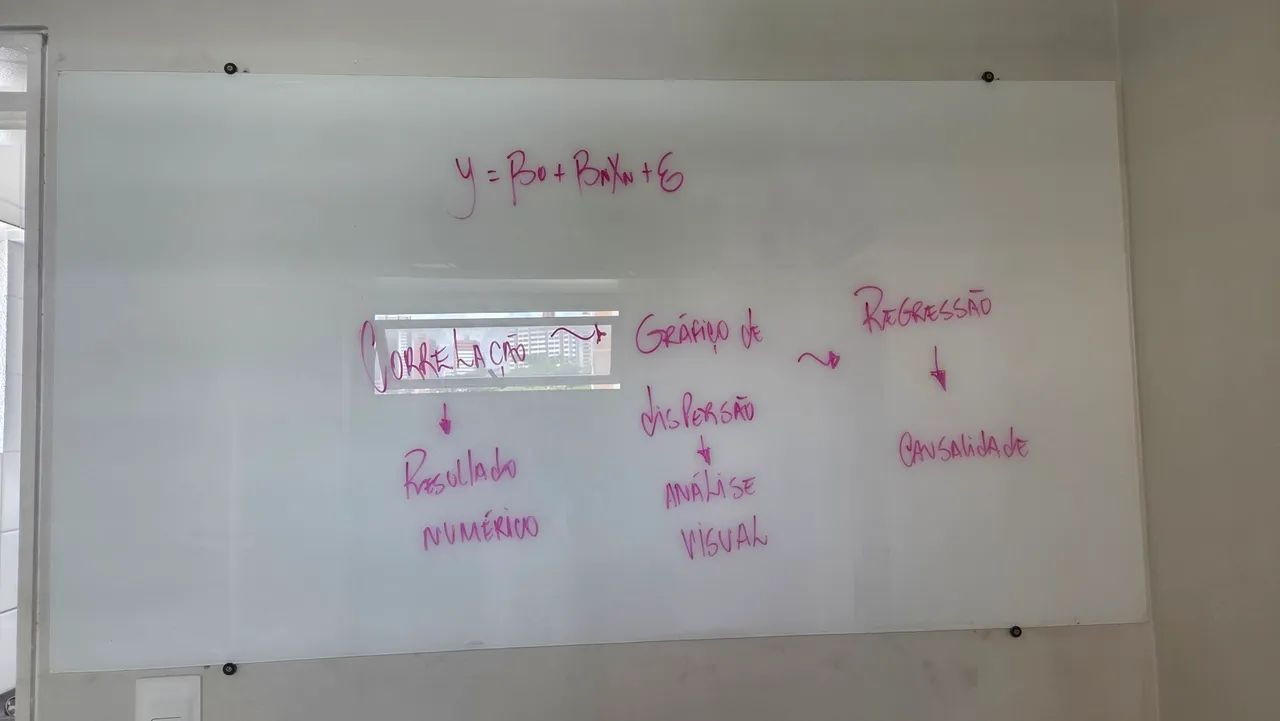 y = β0 + βnXn + ε
CORRELAÇÃO → GRÁFICO de
dISPERSÃO
→ REGRESSÃO
↓
RESULTADO
NUMÉRICO
↓
ANÁLISE
VISUAL
↓
CAUSALIDADE